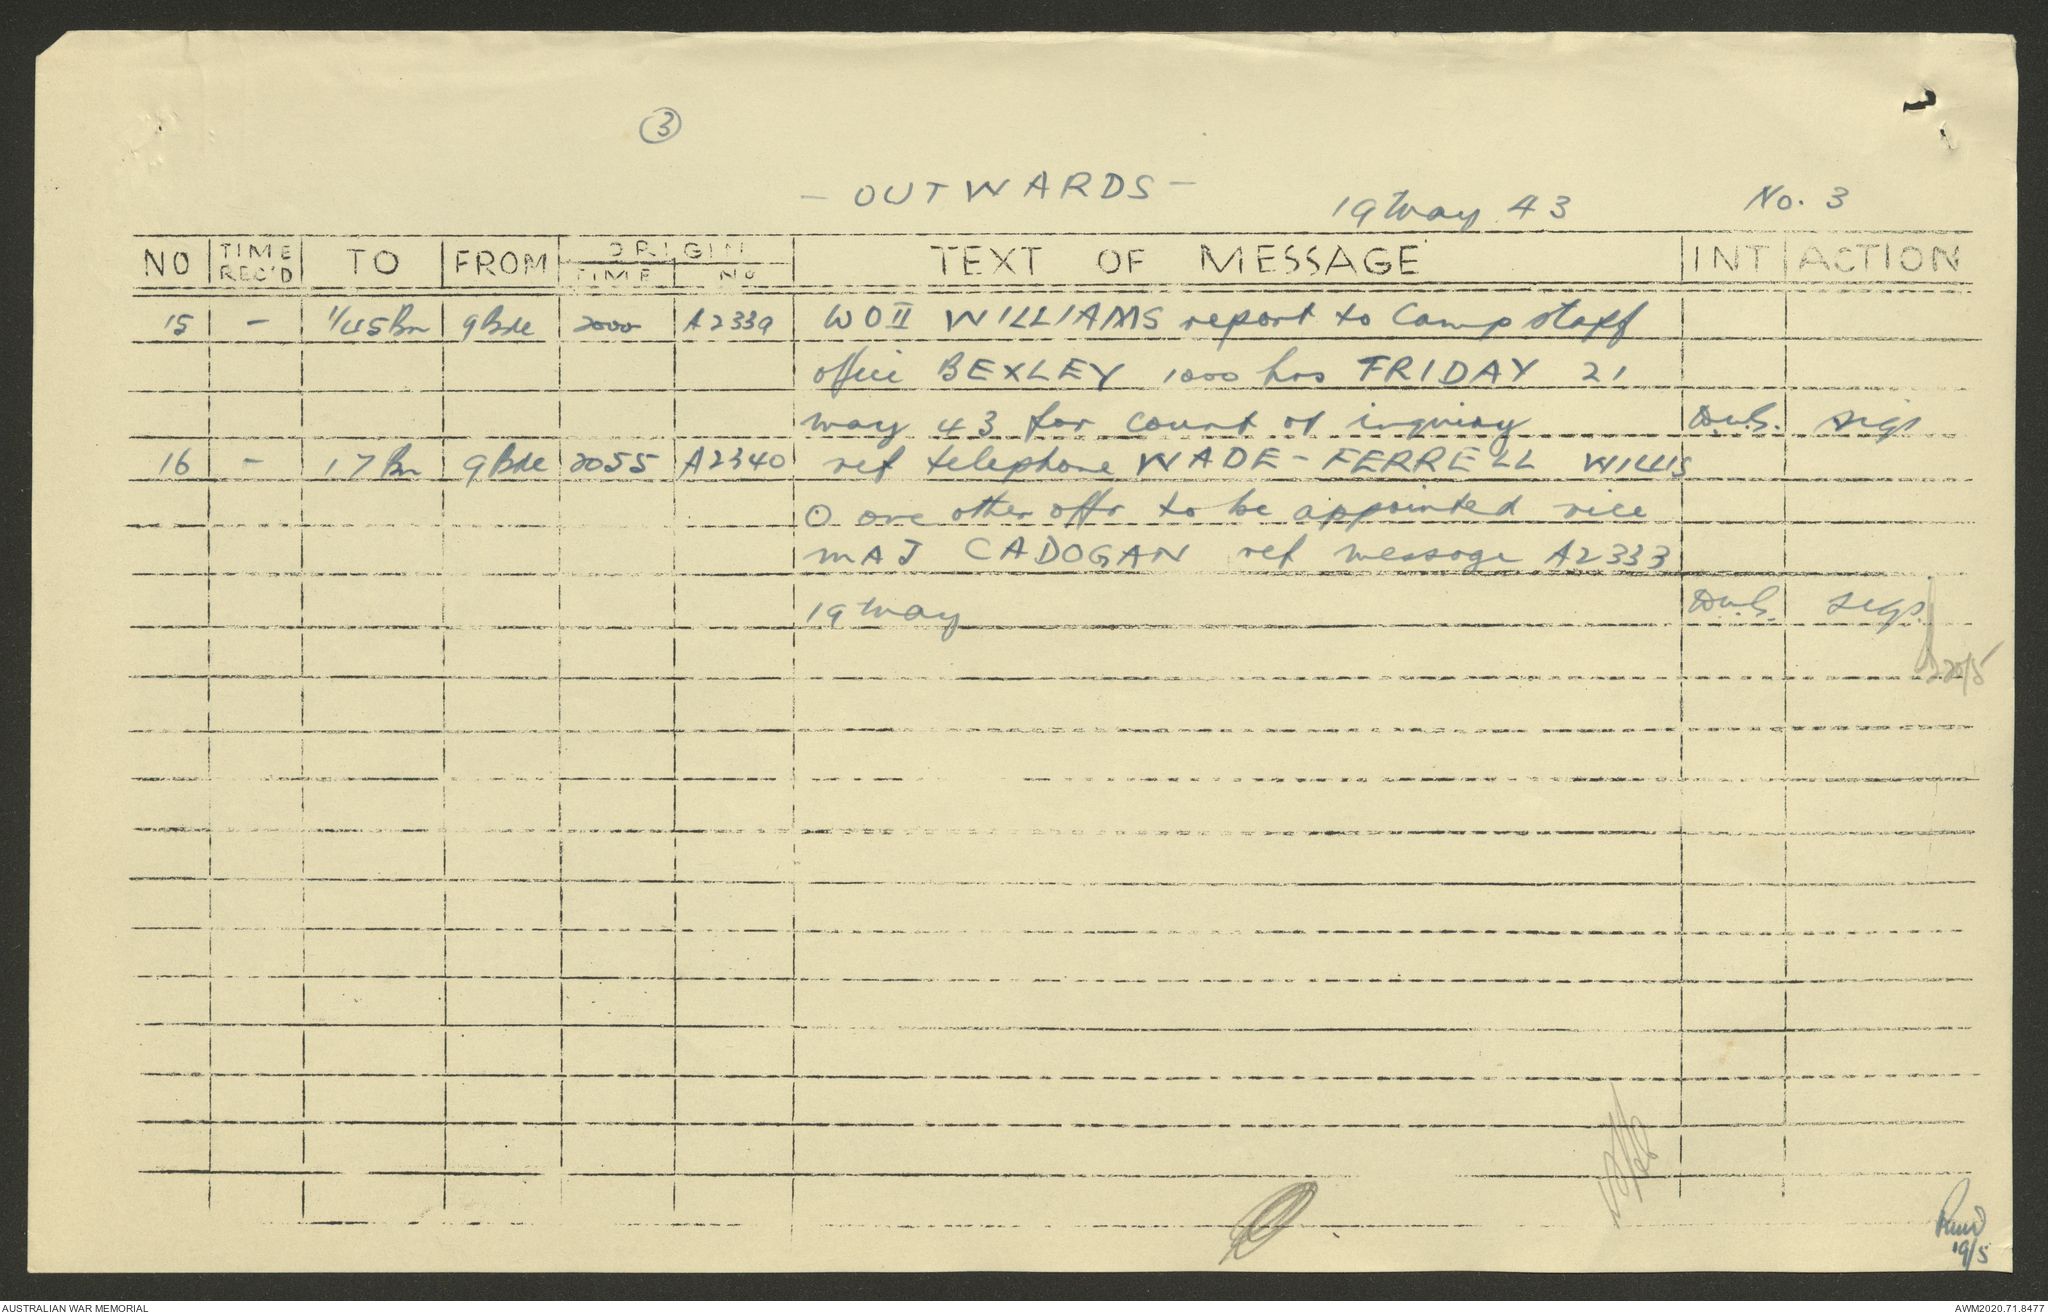 3
- OUTWARDS -
19 May 43 No. 3
NO TIME REC'D TO FROM ORIGIN TIME NO TEXT OF MESSAGE INT ACTION
15 - 1/45 Bn 9 Bde 2000 A2339 WO II WILLIAMS report to Camp staff
office BEXLEY 1000 hrs FRIDAY 21
May 43 for court of inquiry sigs
16 - 17 Bn 9 Bde 2055 A2340 ref telephone WADE-FERRELL WILLIS
O one other offr to be appointed vice
MAJ CADOGAN ref message A2333
19 May sigs.
20/5
19/5
AUSTRALIAN WAR MEMORIAL AWM2020.71.8477